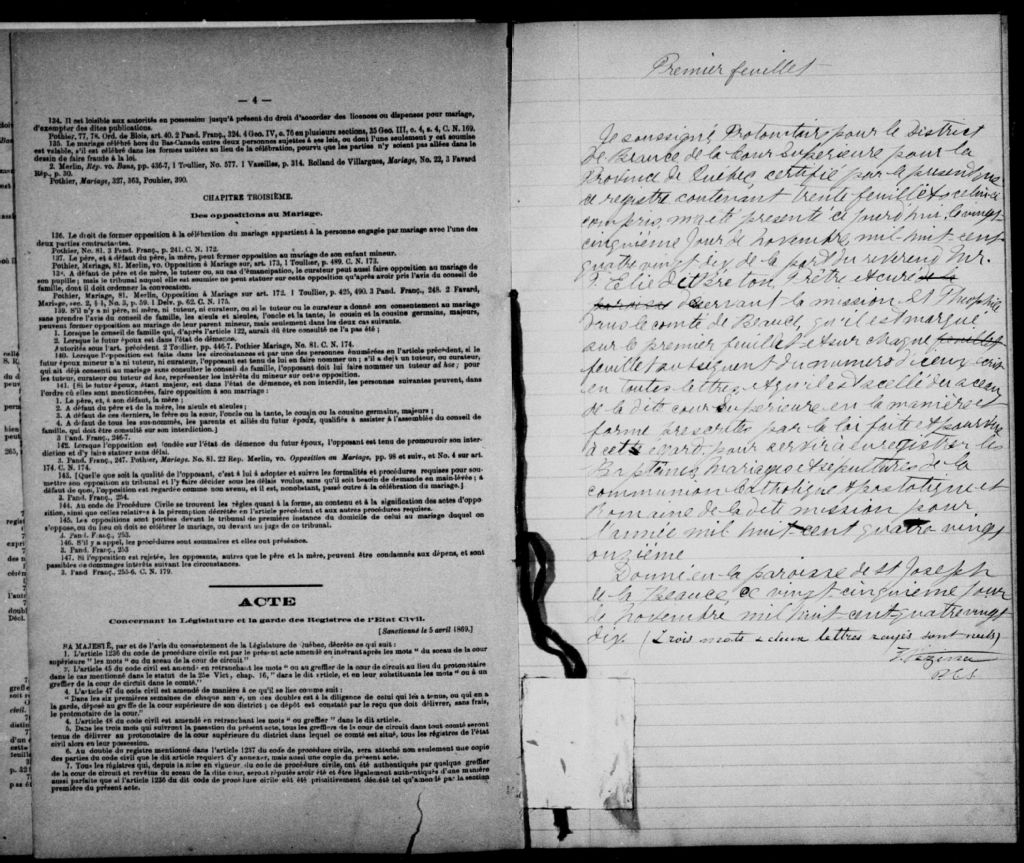 — 4 —
134. Il est loisible aux autorités en possession jusqu'à présent du droit d'accorder des licences ou dispenses pour mariage,
d'exempter des dites publications.
Pothier, 77, 78. Ord. de Blois, art. 40. 2 Pand. Franç., 324. 4 Geo. IV, c. 76 en plusieurs sections, 35 Geo. III, c. 4, s. 4, C. N. 169.
135. Le mariage célébré hors du Bas-Canada entre deux personnes sujettes à ses lois, ou dont l'une seulement y est soumise
est valable, s'il est célébré dans les formes usitées au lieu de la célébration, pourvu que les parties n'y soient pas allées dans le
dessin de faire fraude à la loi.
2. Merlin, Rép. vo. Bans, pp. 436-7, 1 Toullier, No. 577. 1 Vazeilles, p. 314. Rolland de Villargues, Mariage, No. 22, 3 Favard
Rép., p. 30.
Pothier, Mariage, 327, 363, Pouhier, 390.
CHAPITRE TROISIÈME.
Des oppositions au Mariage.
136. Le droit de former opposition à la célébration du mariage appartient à la personne engagée par mariage avec l'une des
deux parties contractantes.
Pothier, No. 81. 3 Pand. Franç., p. 241. C. N. 172.
137. Le père, et à défaut du père, la mère, peut former opposition au mariage de son enfant mineur.
Pothier, Mariage, 81. Merlin, vo. Opposition à Mariage, sur art. 173, 1 Toullier, p. 489. C. N. 173.
A défaut de père et de mère, le tuteur ou, au cas d'émancipation, le curateur peut aussi faire opposition au mariage de son
pupille; mais le tribunal auquel elle est soumise ne peut statuer sur cette opposition qu'après avoir pris l'avis du conseil de
famille, dont il doit ordonner la convocation.
Pothier, Mariage, 81. Merlin, Opposition à Mariage sur art. 172. 1 Toullier, p. 425, 490. 3 Pand. Franç., 248. 2 Favard,
Mariage, sec. 2, § 1, No. 3, p. 59. 1 Delv. p. 62. C. N. 175.
139. S'il n'y a ni père, ni mère, ni tuteur, ni curateur, ou si le tuteur ou le curateur a donné son consentement au mariage
sans prendre l'avis du conseil de famille, les aïeuls et aïeules, l'oncle et la tante, le cousin et la cousine germains, majeurs,
peuvent former opposition au mariage de leur parent mineur, mais seulement dans les deux cas suivants.
1. Lorsque le conseil de famille qui, d'après l'article 122, aurait dû être consulté ne l'a pas été;
2. Lorsque le futur époux est dans l'état de démence.
Autorités sous l'art. précédent. 2 Toullier, pp. 446-7. Pothier Mariage, No. 81. C. N. 174.
140. Lorsque l'opposition est faite dans les circonstances et par une des personnes énumérées en l'article précédent, si le
futur époux mineur n'a ni tuteur, ni curateur, l'opposant est tenu de lui en faire nommer un; s'il a dejà un tuteur, ou curateur,
qui ait déjà consenti au mariage sans consulter le conseil de famille, l'opposant doit lui faire nommer un tuteur ad hoc; pour
les tuteur, curateur ou tuteur ad hoc, représenter les intérêts du mineur sur cette opposition.
141. [Si le futur époux, étant majeur, est dans l'état de démence, et non interdit, les personnes suivantes peuvent, dans
l'ordre où elles sont mentionnées, faire opposition à son mariage:
1. Le père, et, à son défaut, la mère;
2. A défaut du père et de la mère, les aïeuls et aïeules;
3. A défaut de ces derniers, le frère ou la sœur, l'oncle ou la tante, le cousin ou la cousine germains, majeurs;
4. A défaut de tous les sus-nommés, les parents et alliés du futur époux, qualifiés à assister à l'assemblée du conseil de
famille, qui doit être consulté sur son interdiction.]
3 Pand. Franç., 246-7.
142. Lorsque l'opposition est fondée sur l'état de démence du futur époux, l'opposant est tenu de promouvoir son inter-
diction et d'y faire statuer sans délai.
3. Pand. Franç., 247. Pothier, Mariage. No. 81. 22 Rep. Merlin, vo. Opposition au Mariage, pp. 98 et suiv., et No. 4 sur art.
174. C. N. 174.
143. [Quelle que soit la qualité de l'opposant, c'est à lui à adopter et suivre les formalités et procédures requises pour sou-
mettre son opposition au tribunal et l'y faire décider sous les délais voulus, sans qu'il soit besoin de demande en main-levée; à
défaut de quoi, l'opposition est regardée comme non avenue, et il est, nonobstant, passé outre à la célébration du mariage.]
3. Pand. Franç., 254.
144. Au code de Procédure Civile se trouvent les règles quant à la forme, au contenu et à la signification des actes d'oppo-
sition, ainsi que celles relatives à la péremption décrétée en l'article précédent et aux autres procédures requises.
145. Les oppositions sont portées devant le tribunal de première instance du domicile de celui au mariage duquel on
s'oppose, ou du lieu où doit se célébrer le mariage, ou devant un juge de ce tribunal.
3. Pand. Franç., 253.
146. S'il y a appel, les procédures sont sommaires et elles ont présance.
3. Pand. Franç., 253
147. Si l'opposition est rejetée, les opposants, autres que le père et la mère, peuvent être condamnés aux dépens, et sont
passibles de dommages intérêts suivant les circonstances.
3. Pand. Franç., 255-6. C. N. 179.
ACTE
Concernant la Législature et la garde des Registres de l'Etat Civil.
[Sanctionné le 5 avril 1869.]
SA MAJESTÉ, par et de l'avis du consentement de la Législature de Québec, décrète ce qui suit:
1. L'article 1236 du code de procédure civile est par le présent acte amendé en insérant après les mots "du sceau de la cour
supérieure" les mots "ou du sceau de la cour de circuit"
2. L'article 45 du code civil est amendé en retranchant les mots "ou au greffier de la cour de circuit au lieu du protonotaire
dans le cas mentionné dans le statut de la 25e Vict., chap. 16," dans le dit article, et en leur substituants les mots "ou à un
greffier de la cour de circuit dans le comté."
3. L'article 47 du code civil est amendé de manière à ce qu'il se lise comme suit:
"Dans les six premières semaines de chaque année, un des doubles est à la diligence de celui qui les a tenus, ou qui en a
la garde, déposé au greffe de la cour supérieure de son district; ce dépôt est constaté par le reçu que doit délivrer, sans frais,
le protonotaire de la cour."
4. L'article 48 du code civil est amendé en retranchant les mots "ou greffier" dans le dit article.
5. Dans les trois mois qui suivront la passation du présent acte, tous les greffiers de la cour de circuit dans tout comté seront
tenus de délivrer au protonotaire de la cour supérieure du district dans lequel ce comté est situé, tous les registres de l'état
civil alors en leur possession.
6. Au double du registre mentionné dans l'article 1237 du code de procédure civile, sera attaché non seulement une copie
des parties du code civil que le dit article requiert d'y annexer, mais aussi une copie du présent acte.
7. Tous les régistres qui, depuis la mise en vigueur du code de procédure civile, ont été authentiqués par quelque greffier
de la cour de circuit et revêtus du sceau de la dite cour, seront réputés avoir été et être légalement authentiqués d'une manière
aussi parfaite que si l'article 1236 du dit code de procédure civile eût été primitivement décrété tel qu'amendé par la section
première du présent acte.
Premier feuillet
Je soussigné Protonotaire pour le District
de Beauce de la Cour Supérieure pour la
Province de Québec certifie par la présente que
ce registre contenant trente feuillets celui ci
compris, m'a été présenté ce jourd'hui, le vingt
cinquième jour de novembre, mil huit cent
quatre vingt dix de la part du révérend Mr.
Prêtre et curé
desservant la mission St Théophile
dans le comté de Beauce, qu'il est marqué
sur le premier feuillet et sur chaque feuillet
feuillet subséquent du numéro d'icelui écrit
en toutes lettres et qu'il est scellé du sceau
de la dite cour Supérieure en la manière et
forme prescrites par la loi faite et pourvue
à cet égard, pour servir à enregistrer les
Baptêmes, mariages et sépultures de la
communion Catholique Apostolique et
Romaine de la dite mission pour
l'année mil huit cent quatre vingt
onzième
Donné en la paroisse de St Joseph
de la Beauce, ce vingt cinquième jour
de novembre mil huit cent quatre vingt
dix (Trois mots & deux lettres rayés sont nuls)
P.C.S